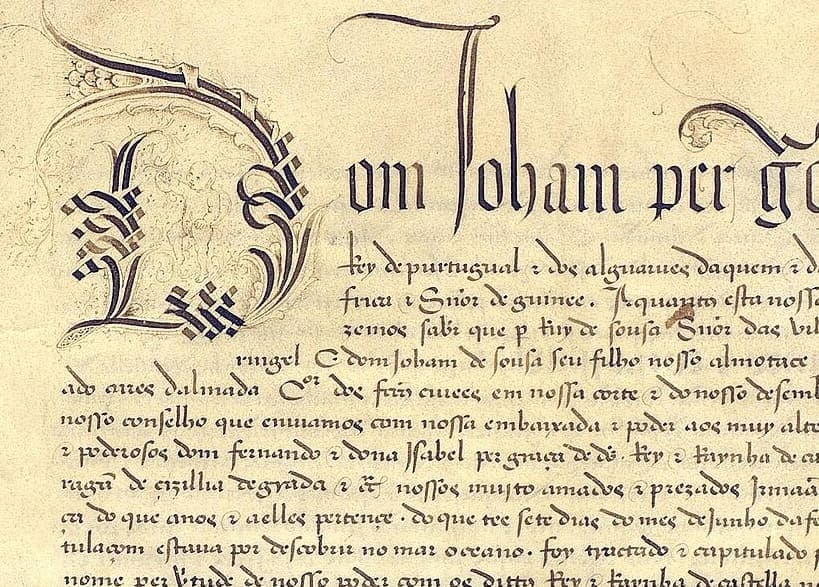 Dom Joham per g
Rey de purtugual ⁊ dos alguarues daquem ⁊ d
frica ⁊ Snõr de guinee. A quanto esta noss
zemos saber que p Ruy de sousa Snõr das vil
ringel E dom Joham de sousa seu filho nosso almotace
ado aires dalmada Cor dos em nossa corte ⁊ do nosso desemb
nosso conselho que enuiamos com nossa embaixada ⁊ poder aos muy alto
⁊ poderosos dom fernando ⁊ dona Isabel per graça de ds. Rey ⁊ Raynha de ca
ragã de cizillia degrada ⁊ nossos muito amados ⁊ prezados Irmaã
ca do que anos ⁊ aelles pertençe. do que tee sete dias do mes de Junho da f
tulaçom estaua por descobrir no mar oceano. foy tractado ⁊ capitulado p
nome per vtude de nosso poder com os dittos Rey ⁊ Raynha de castella n